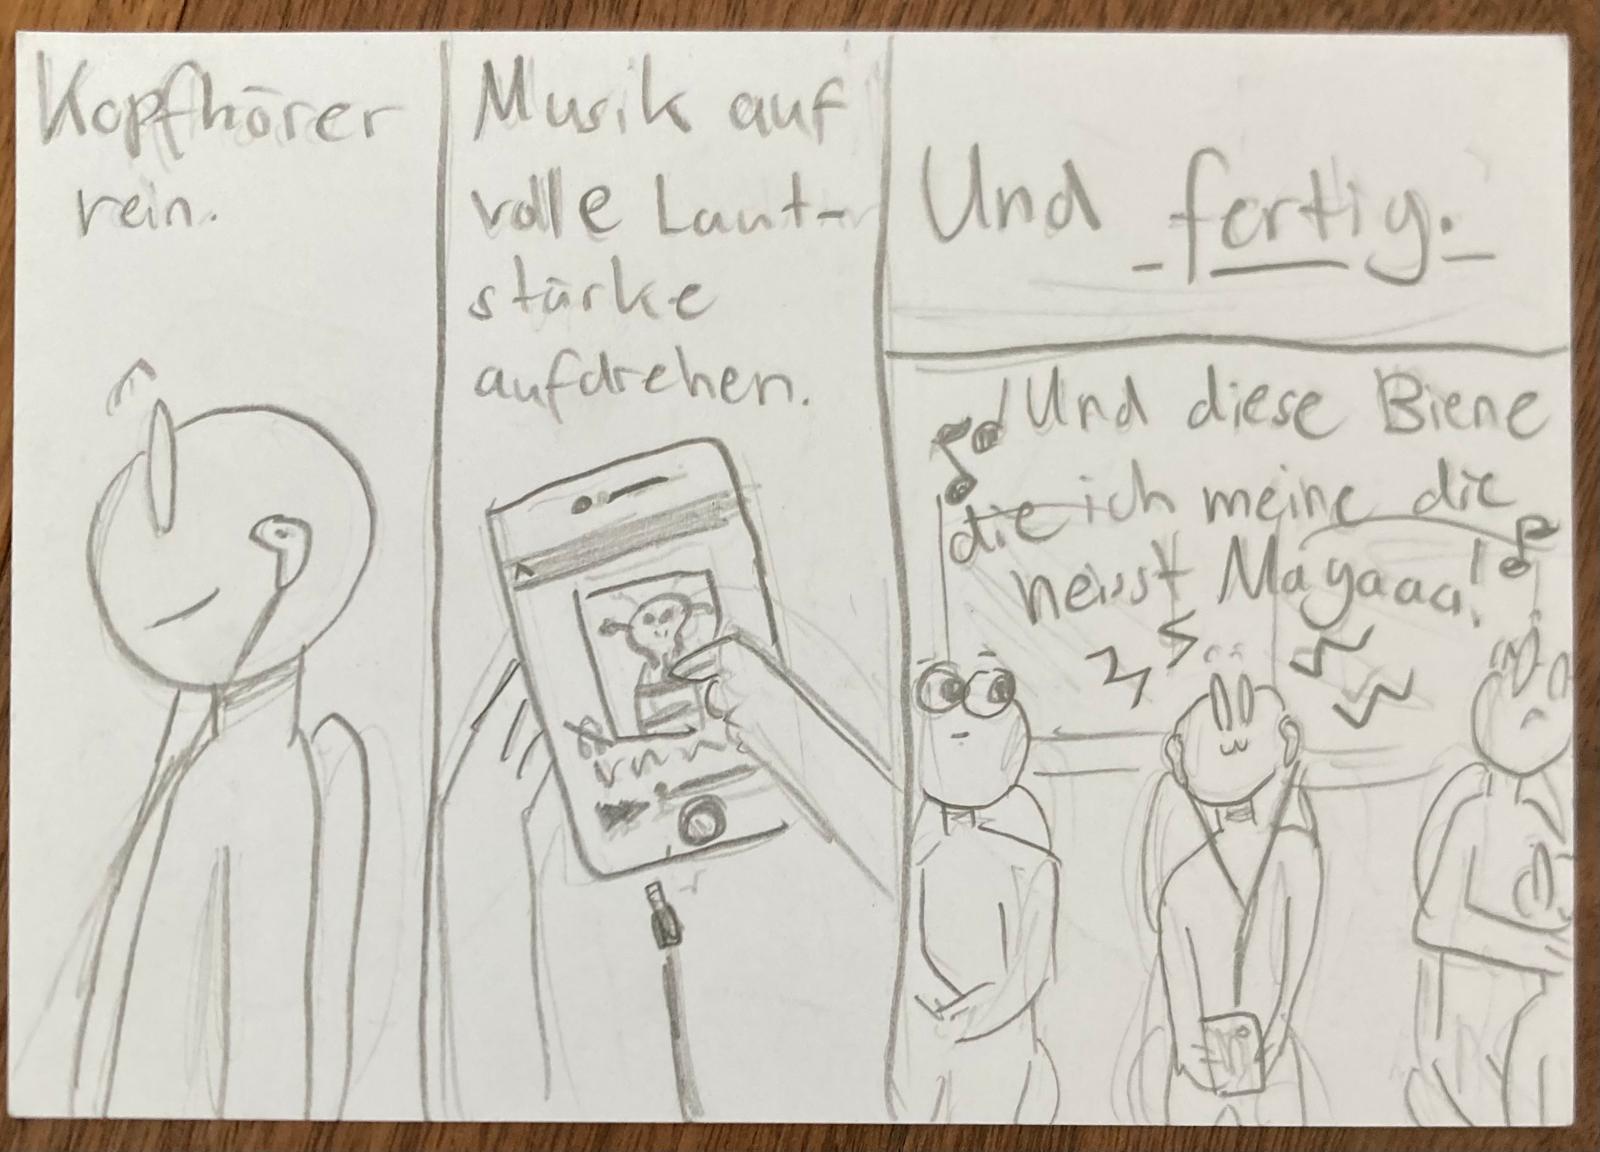 Kopfhörer
rein.
Musik auf
volle Laut-
stärke
aufdrehen.
Und fertig.
Und diese Biene
die ich meine die
heisst Mayaaa!